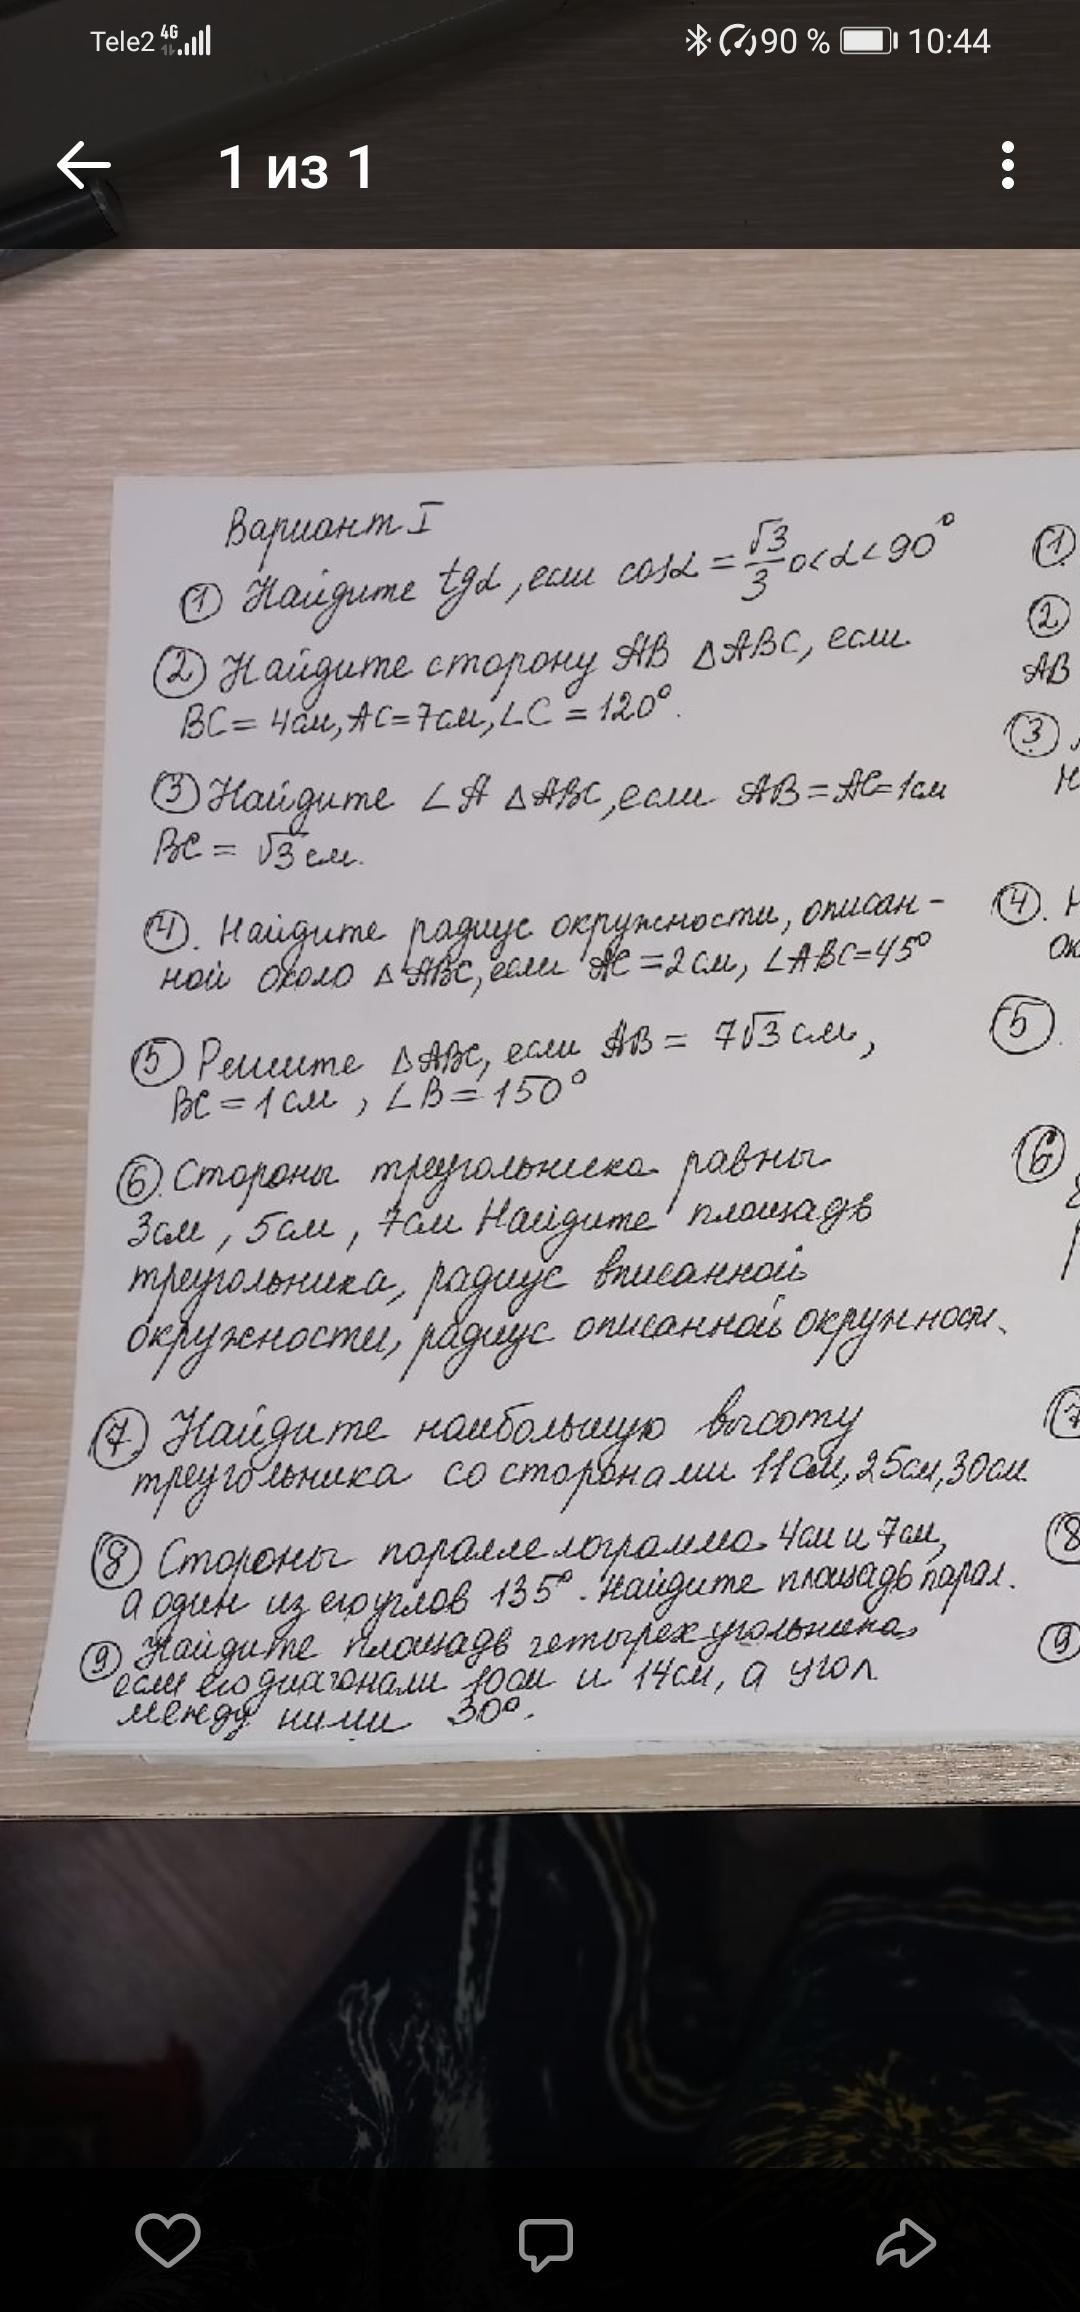 Tele2 4G 90 % 10:44
1 из 1
Вариант I
① Найдите tgα, если cosα = √3/3 0<α<90°
② Найдите сторону AB △ABC, если
BC = 4см, AC = 7см, ∠C = 120°.
③ Найдите ∠A △ABC, если AB = AC = 1см
BC = √3 см.
④. Найдите радиус окружности, описан-
ной около △ABC, если AC = 2см, ∠ABC = 45°
⑤ Решите △ABC, если AB = 7√3 см,
BC = 1 см, ∠B = 150°
⑥. Стороны треугольника равны
3см, 5см, 7см Найдите площадь
треугольника, радиус вписанной
окружности, радиус описанной окружност.
⑦ Найдите наибольшую высоту
треугольника со сторонами 11см, 25см, 30см
⑧ Стороны параллелограмма 4см и 7см,
а один из его углов 135°. Найдите площадь парал.
⑨ Найдите площадь четырехугольника,
если его диагонали 10см и 14см, а угол
между ними 30°.
①
②
AB
③
④.
ок
⑤.
⑥
⑦
⑧
⑨